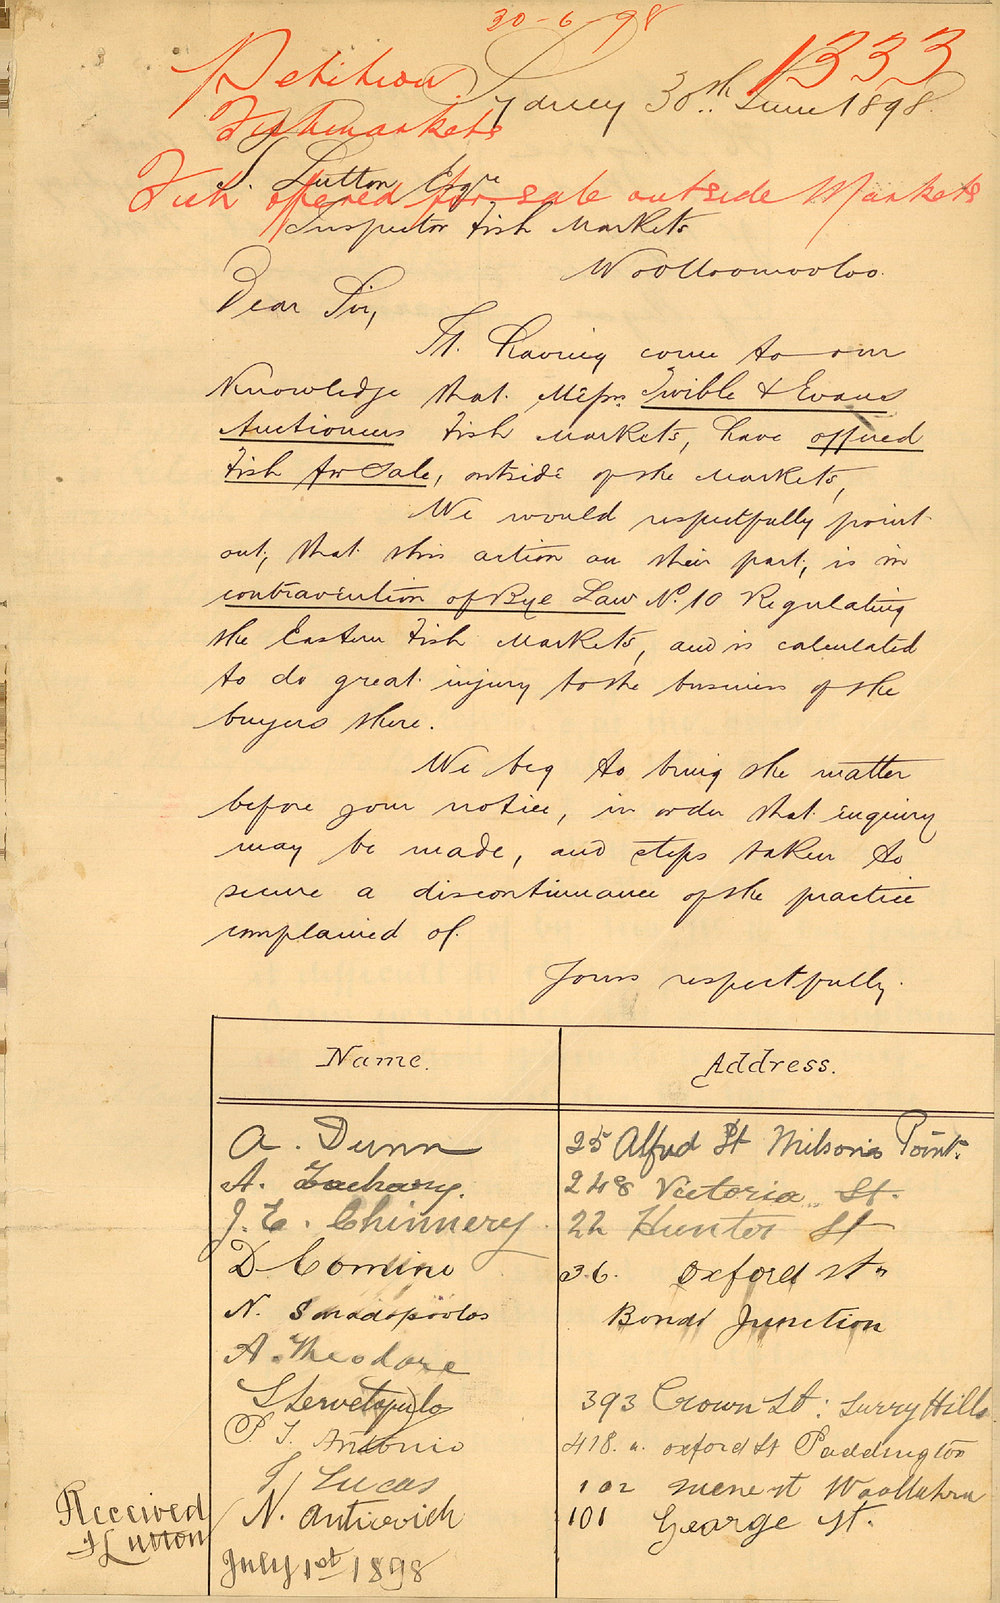 30-6-98
Petition. 1333
Sydney 30th June 1898.
Fishmarkets
S. Lutton Esqre
Fish offered for sale outside Markets
Inspector Fish Markets
Woolloomooloo.
Dear Sir,
It. having come to our
Knowledge that. Messrs Twible & Evans
Auctioneers Fish Markets, have offered
Fish for Sale, outside of the Markets,
We would respectfully point
out, that this action on their part, is in
contravention of Bye Law No. 10 Regulating
the Eastern Fish Markets, and is calculated
to do great injury to the business of the
buyers there.
We beg to bring the matter
before your notice, in order that enquiry
may be made, and steps taken to
secure a discontinuance of the practice
complained of.
Yours respectfully.
Name. Address.
A. Dunn 25 Alfred St Milsons Point.
A. Zachary. 248 Victoria St.
J. E. Chinnery. 22 Hunter St
D Comino 36. Oxford st.
N. Bondi Junction
A. Theodore
S Servetopulo 393 Crown St: Surry Hills
P. T. Antonio 418. a. oxford St Paddington
Lucas 102 Woollahra
N. Anticevich 101 George St.
Received
Lutton
July 1st 1898